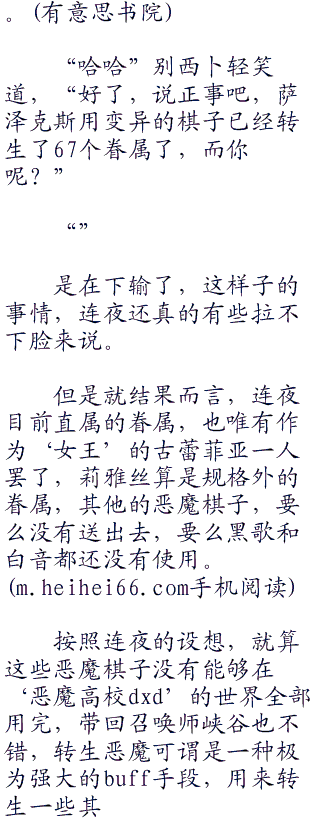 。(有意思书院)
“哈哈”别西卜轻笑
道，“好了，说正事吧，萨
泽克斯用变异的棋子已经转
生了67个眷属了，而你
呢？”
“”
是在下输了，这样子的
事情，连夜还真的有些拉不
下脸来说。
但是就结果而言，连夜
目前直属的眷属，也唯有作
为‘女王’的古蕾菲亚一人
罢了，莉雅丝算是规格外的
眷属，其他的恶魔棋子，要
么没有送出去，要么黑歌和
白音都还没有使用。
(m.heihei66.com手机阅读)
按照连夜的设想，就算
这些恶魔棋子没有能够在
‘恶魔高校dxd’的世界全部
用完，带回召唤师峡谷也不
错，转生恶魔可谓是一种极
为强大的buff手段，用来转
生一些其